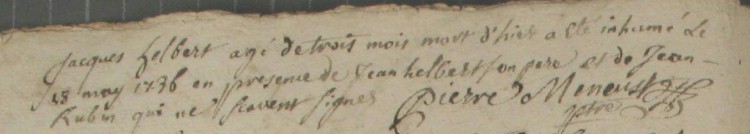 Jacques helbert agé de trois mois mort d'hier a été inhumé Le
18 may 1736 en presence de Jean helbert son pere et de Jean
Rubin qui ne scavent signer Pierre Meneust
ptre